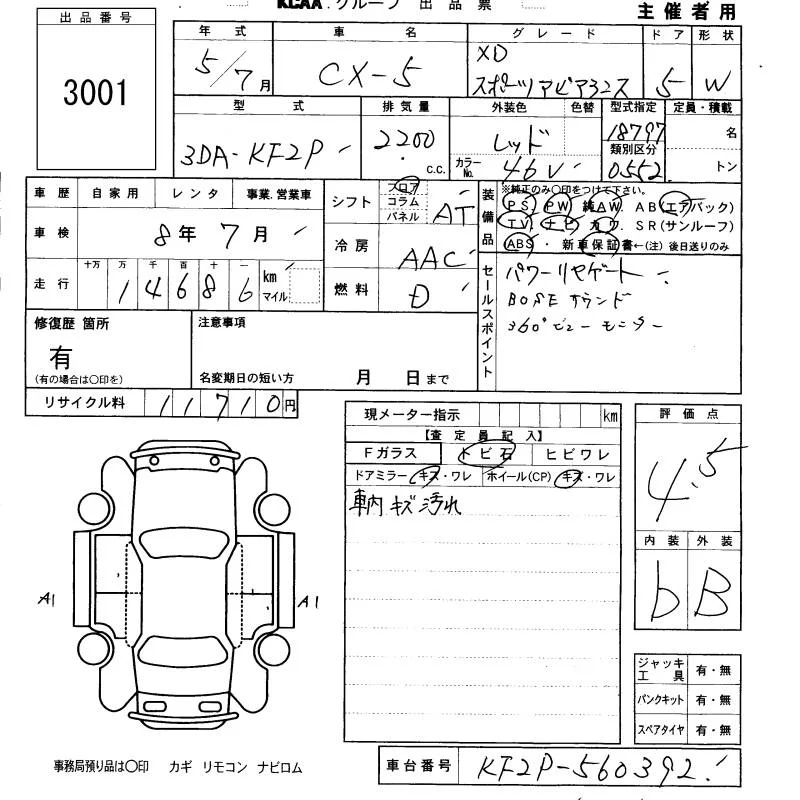 KCAA グループ 出品票
主催者用
出品番号
3001
年式 車名 グレード ドア 形状
5/7月 CX-5 XD スポーツアピアランス 5 W
型式 排気量 外装色 色替 型式指定 定員・積載
3DA-KF2P 2200 c.c. レッド 18797 名
カラーNo. 46V 類別区分 0552 トン
車歴 自家用 レンタ 事業.営業車
車検 8年 7月
走行 十万 万 千 百 十 一
14686 km マイル
シフト フロア コラム パネル AT
冷房 AAC
燃料 D
装備品
※純正のみ〇印をつけて下さい。
PS PW 純AW. AB(エアバック)
TV ナビ カワ. SR(サンルーフ)
ABS・新車保証書←(注)後日送りのみ
セールスポイント
パワーリヤゲート
BOSE サウンド
360°ビューモニター
修復歴 箇所
有
(有の場合は〇印を)
注意事項
名変期日の短い方 月 日まで
リサイクル料 11710円
現メーター指示 km
【査定員記入】
Fガラス トビ石 ヒビワレ
ドアミラー キズ・ワレ ホイール(CP) キズ・ワレ
車内キズ汚れ
評価点
4.5
内装 外装
b B
A1 A1
ジャッキ工具 有・無
パンクキット 有・無
スペアタイヤ 有・無
事務局預り品は〇印 カギ リモコン ナビロム
車台番号 KF2P-560392